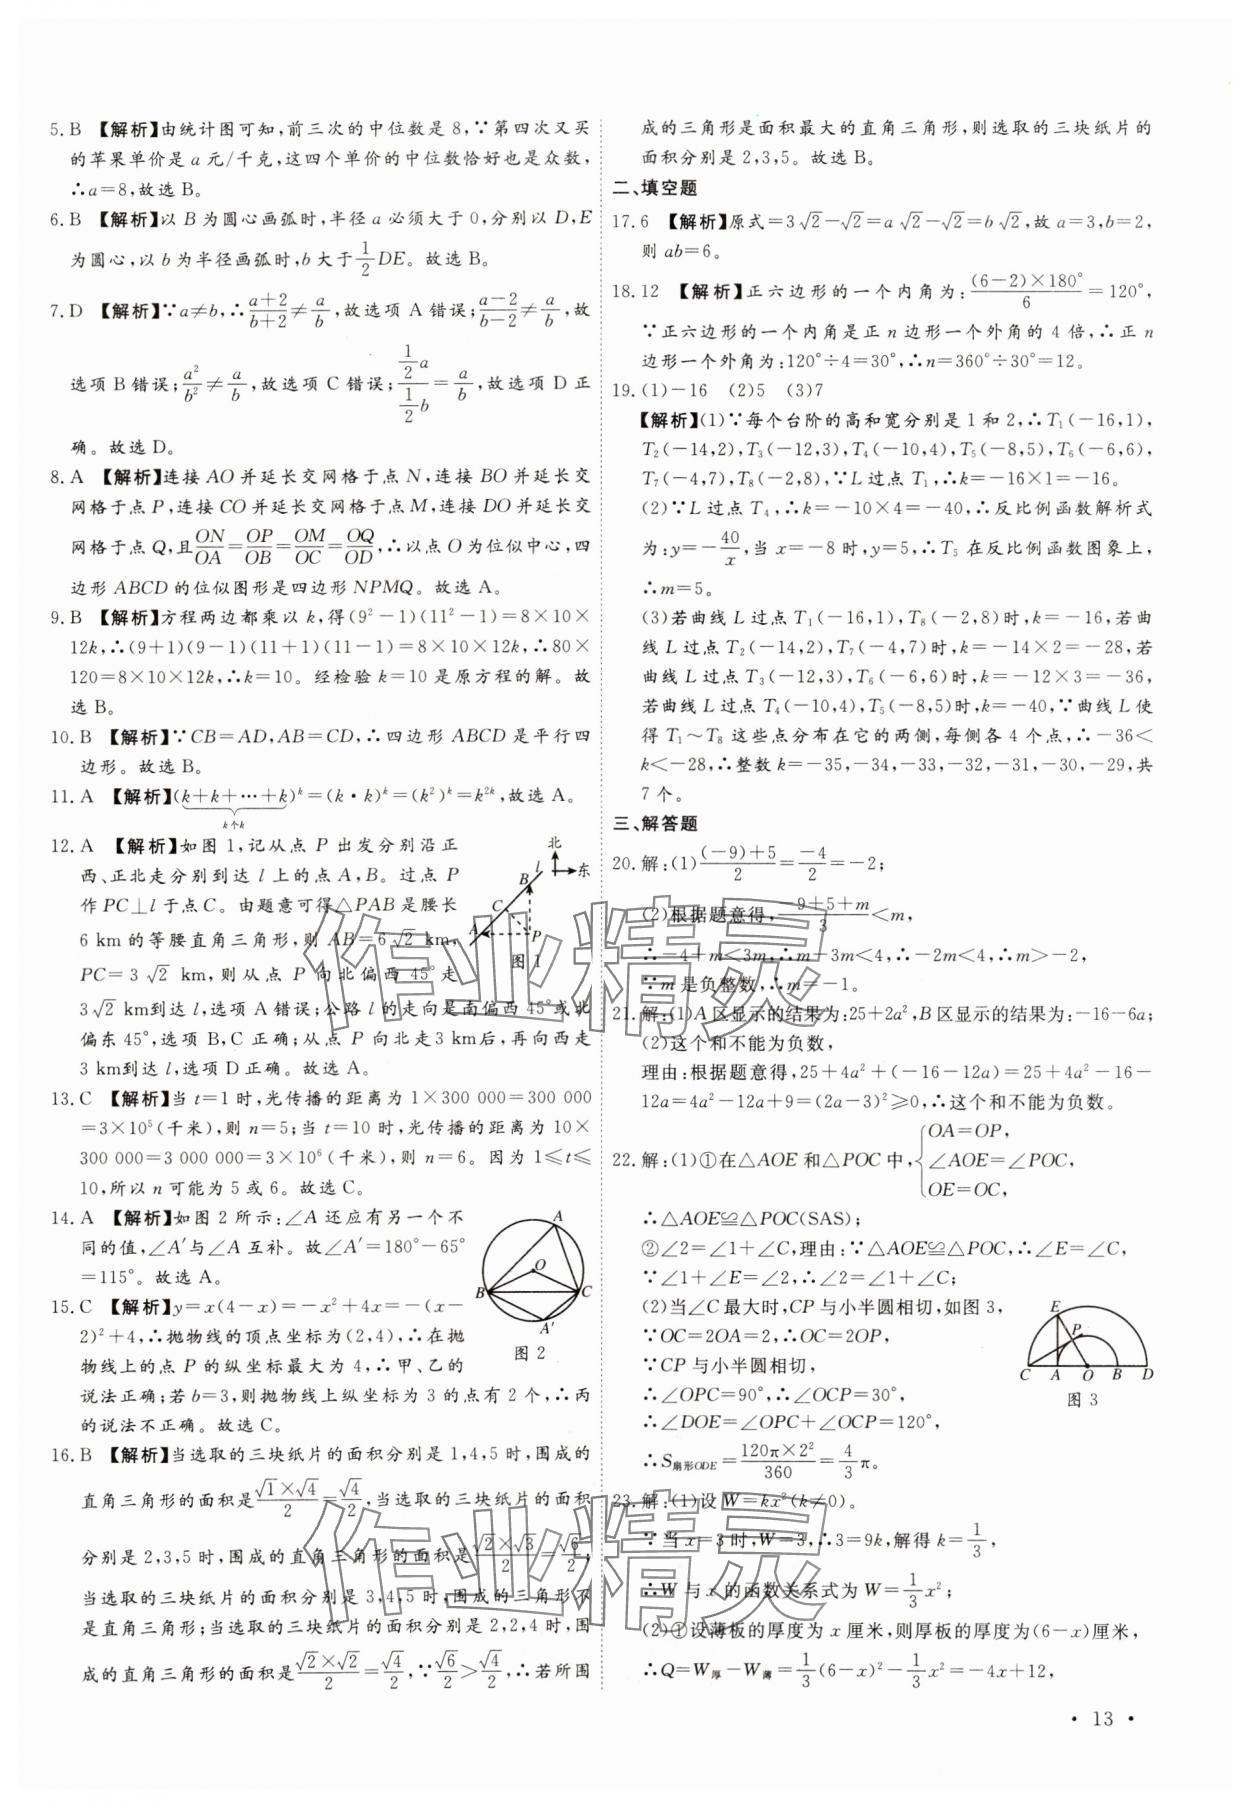 5. B 【解析】由统计图可知,前三次的中位数是 8,∵第四次又买
的苹果单价是 a 元/千克,这四个单价的中位数恰好也是众数,
∴a=8,故选 B。
6. B 【解析】以 B 为圆心画弧时,半径 a 必须大于 0,分别以 D,E
为圆心,以 b 为半径画弧时,b 大于 1/2 DE。故选 B。
7. D 【解析】∵a≠b,∴(a+2)/(b+2)≠a/b,故选项 A 错误;(a-2)/(b-2)≠a/b,故
选项 B 错误;a²/b²≠a/b,故选项 C 错误;(1/2 a)/(1/2 b)=a/b,故选项 D 正
确。故选 D。
8. A 【解析】连接 AO 并延长交网格于点 N,连接 BO 并延长交
网格于点 P,连接 CO 并延长交网格于点 M,连接 DO 并延长交
网格于点 Q,且 ON/OA=OP/OB=OM/OC=OQ/OD,∴以点 O 为位似中心,四
边形 ABCD 的位似图形是四边形 NPMQ。故选 A。
9. B 【解析】方程两边都乘以 k,得(9²-1)(11²-1)=8×10×
12k,∴(9+1)(9-1)(11+1)(11-1)=8×10×12k,∴80×
120=8×10×12k,∴k=10。经检验 k=10 是原方程的解。故
选 B。
10. B 【解析】∵CB=AD,AB=CD,∴四边形 ABCD 是平行四
边形。故选 B。
11. A 【解析】(k+k+…+k)ᵏ=(k·k)ᵏ=(k²)ᵏ=k²ᵏ,故选 A。
k个k
12. A 【解析】如图 1,记从点 P 出发分别沿正
西、正北走分别到达 l 上的点 A,B。过点 P
作 PC⊥l 于点 C。由题意可得△PAB 是腰长
6 km 的等腰直角三角形,则 AB=6√2 km,
PC=3√2 km,则从点 P 向北偏西 45°走
3√2 km到达 l,选项 A 错误;公路 l 的走向是南偏西 45°或北
偏东 45°,选项 B,C 正确;从点 P 向北走3 km后,再向西走
3 km到达 l,选项 D 正确。故选 A。
北
东
l
B
C
A
P
图 1
13. C 【解析】当 t=1 时,光传播的距离为 1×300 000=300 000
=3×10⁵(千米),则 n=5;当 t=10 时,光传播的距离为 10×
300 000=3 000 000=3×10⁶(千米),则 n=6。因为 1≤t≤
10,所以 n 可能为 5 或 6。故选 C。
14. A 【解析】如图 2 所示:∠A 还应有另一个不
同的值,∠A′与∠A 互补。故∠A′=180°-65°
=115°。故选 A。
A
O
B
C
A′
图 2
15. C 【解析】y=x(4-x)=-x²+4x=-(x-
2)²+4,∴抛物线的顶点坐标为(2,4),∴在抛
物线上的点 P 的纵坐标最大为 4,∴甲、乙的
说法正确;若 b=3,则抛物线上纵坐标为 3 的点有 2 个,∴丙
的说法不正确。故选 C。
16. B 【解析】当选取的三块纸片的面积分别是 1,4,5 时,围成的
直角三角形的面积是(√1×√4)/2=√4/2,当选取的三块纸片的面积
分别是 2,3,5 时,围成的直角三角形的面积是(√2×√3)/2=√6/2;
当选取的三块纸片的面积分别是 3,4,5 时,围成的三角形不
是直角三角形;当选取的三块纸片的面积分别是 2,2,4 时,围
成的直角三角形的面积是(√2×√2)/2=√4/2,∵√6/2>√4/2,∴若所围
成的三角形是面积最大的直角三角形,则选取的三块纸片的
面积分别是 2,3,5。故选 B。
二、填空题
17. 6 【解析】原式=3√2-√2=a√2-√2=b√2,故 a=3,b=2,
则 ab=6。
18. 12 【解析】正六边形的一个内角为:((6-2)×180°)/6=120°,
∵正六边形的一个内角是正 n 边形一个外角的 4 倍,∴正 n
边形一个外角为:120°÷4=30°,∴n=360°÷30°=12。
19. (1)-16 (2)5 (3)7
【解析】(1)∵每个台阶的高和宽分别是 1 和 2,∴T₁(-16,1),
T₂(-14,2),T₃(-12,3),T₄(-10,4),T₅(-8,5),T₆(-6,6),
T₇(-4,7),T₈(-2,8),∵L 过点 T₁,∴k=-16×1=-16。
(2)∵L 过点 T₄,∴k=-10×4=-40,∴反比例函数解析式
为:y=-40/x,当 x=-8 时,y=5,∴T₅ 在反比例函数图象上,
∴m=5。
(3)若曲线 L 过点 T₁(-16,1),T₈(-2,8)时,k=-16,若曲
线 L 过点 T₂(-14,2),T₇(-4,7)时,k=-14×2=-28,若
曲线 L 过点 T₃(-12,3),T₆(-6,6)时,k=-12×3=-36,
若曲线 L 过点 T₄(-10,4),T₅(-8,5)时,k=-40,∵曲线 L 使
得 T₁~T₈ 这些点分布在它的两侧,每侧各 4 个点,∴-36<
k<-28,∴整数 k=-35,-34,-33,-32,-31,-30,-29,共
7 个。
三、解答题
20. 解:(1)((-9)+5)/2=-4/2=-2;
(2)根据题意得,(-9+5+m)/3<m,
∴-4+m<3m,∴m-3m<4,∴-2m<4,∴m>-2,
∵m 是负整数,∴m=-1。
21. 解:(1)A 区显示的结果为:25+2a²,B 区显示的结果为:-16-6a;
(2)这个和不能为负数,
理由:根据题意得,25+4a²+(-16-12a)=25+4a²-16-
12a=4a²-12a+9=(2a-3)²≥0,∴这个和不能为负数。
22. 解:(1)①在△AOE 和△POC 中,{OA=OP,
∠AOE=∠POC,
OE=OC,
∴△AOE≌△POC(SAS);
②∠2=∠1+∠C,理由:∵△AOE≌△POC,∴∠E=∠C,
∵∠1+∠E=∠2,∴∠2=∠1+∠C;
(2)当∠C 最大时,CP 与小半圆相切,如图 3,
∵OC=2OA=2,∴OC=2OP,
∵CP 与小半圆相切,
∴∠OPC=90°,∴∠OCP=30°,
∴∠DOE=∠OPC+∠OCP=120°,
∴S扇形ODE=(120π×2²)/360=4/3 π。
E
P
C A O B D
图 3
23. 解:(1)设 W=kx²(k≠0)。
∵当 x=3 时,W=3,∴3=9k,解得 k=1/3,
∴W 与 x 的函数关系式为 W=1/3 x²;
(2)①设薄板的厚度为 x 厘米,则厚板的厚度为(6-x)厘米,
∴Q=W厚-W薄=1/3(6-x)²-1/3 x²=-4x+12,
作业精灵
作业精灵
• 13 •